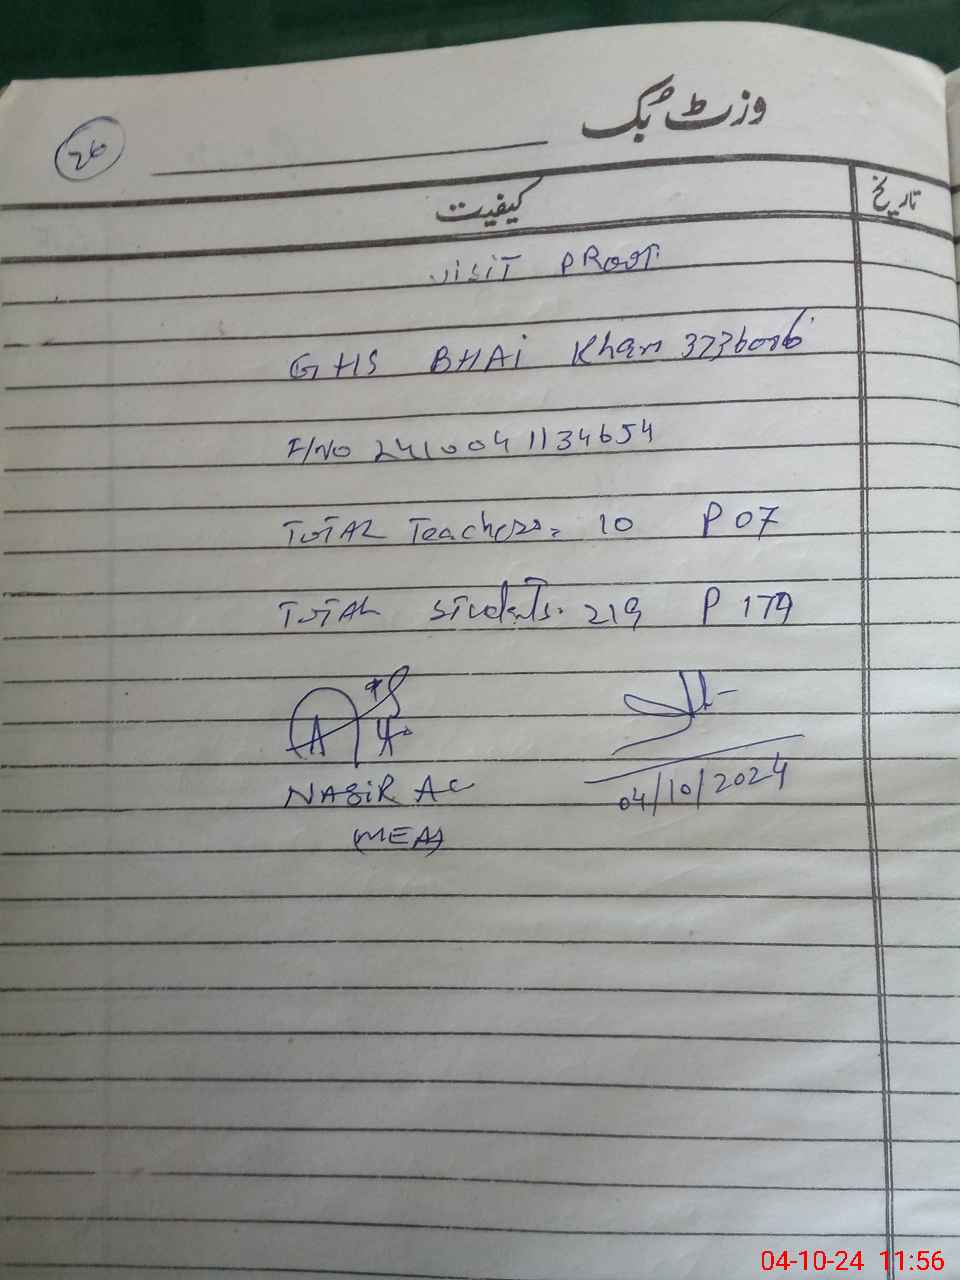 وزٹ بُک
26
کیفیت
تاریخ
VISIT PROOF
GHS BHAI Khan 37360016
I/No 2410041134654
TOTAL Teachers = 10 P 07
TOTAL Students = 219 P 179
NAZIR A
(MEA)
04/10/2024
04-10-24 11:56